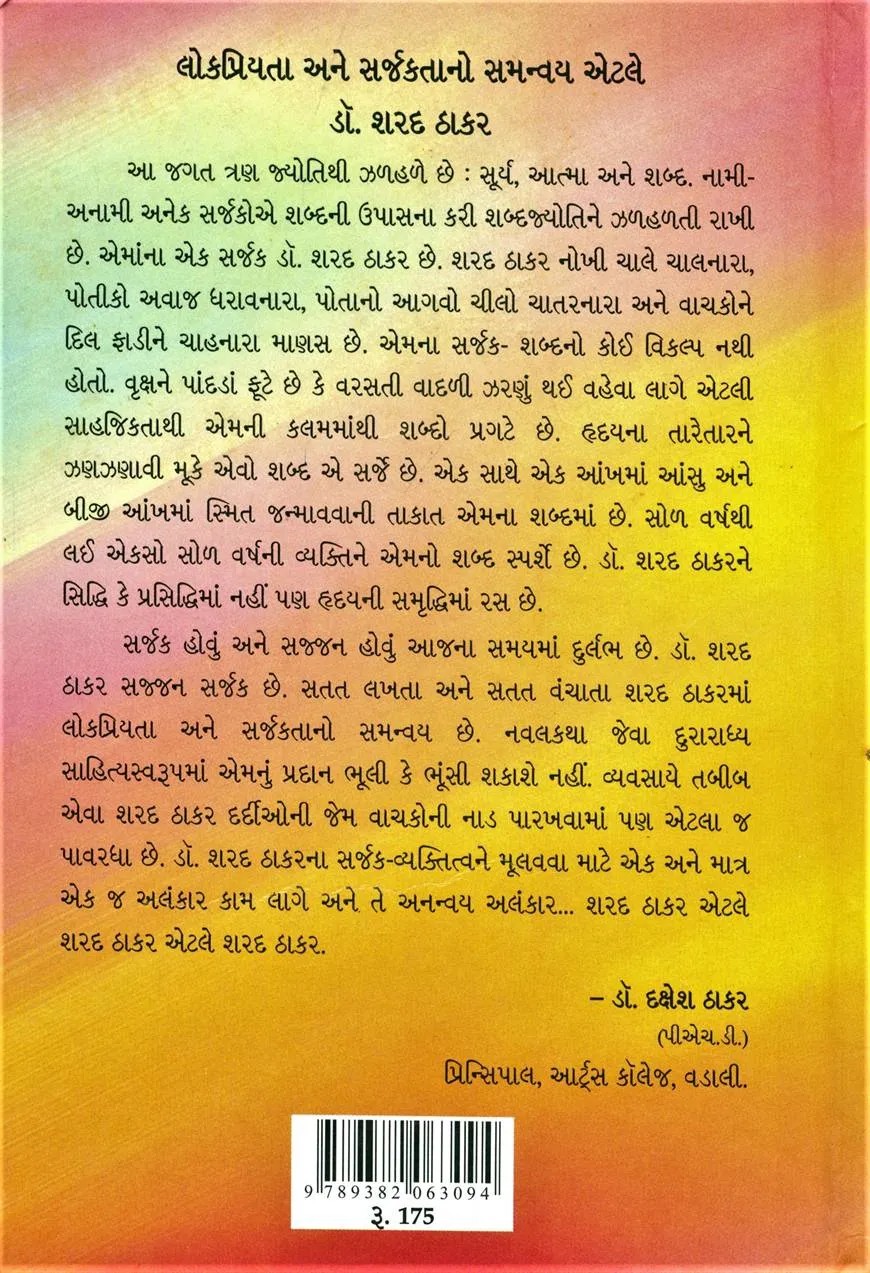 લોકપ્રિયતા અને સર્જકતાનો સમન્વય એટલે
ડૉ. શરદ ઠાકર
આ જગત ત્રણ જ્યોતિથી ઝળહળે છે : સૂર્ય, આત્મા અને શબ્દ. નામી-
અનામી અનેક સર્જકોએ શબ્દની ઉપાસના કરી શબ્દજ્યોતિને ઝળહળતી રાખી
છે. એમાંના એક સર્જક ડૉ. શરદ ઠાકર છે. શરદ ઠાકર નોખી ચાલે ચાલનારા,
પોતીકો અવાજ ધરાવનારા, પોતાનો આગવો ચીલો ચાતરનારા અને વાચકોને
દિલ ફાડીને ચાહનારા માણસ છે. એમના સર્જક- શબ્દનો કોઈ વિકલ્પ નથી
હોતો. વૃક્ષને પાંદડાં ફૂટે છે કે વરસતી વાદળી ઝરણું થઈ વહેવા લાગે એટલી
સાહજિકતાથી એમની કલમમાંથી શબ્દો પ્રગટે છે. હૃદયના તારેતારને
ઝણઝણાવી મૂકે એવો શબ્દ એ સર્જે છે. એક સાથે એક આંખમાં આંસુ અને
બીજી આંખમાં સ્મિત જન્માવવાની તાકાત એમના શબ્દમાં છે. સોળ વર્ષથી
લઈ એકસો સોળ વર્ષની વ્યક્તિને એમનો શબ્દ સ્પર્શે છે. ડૉ. શરદ ઠાકરને
સિદ્ધિ કે પ્રસિદ્ધિમાં નહીં પણ હૃદયની સમૃદ્ધિમાં રસ છે.
સર્જક હોવું અને સજ્જન હોવું આજના સમયમાં દુર્લભ છે. ડૉ. શરદ
ઠાકર સજ્જન સર્જક છે. સતત લખતા અને સતત વંચાતા શરદ ઠાકરમાં
લોકપ્રિયતા અને સર્જકતાનો સમન્વય છે. નવલકથા જેવા દુરારાધ્ય
સાહિત્યસ્વરૂપમાં એમનું પ્રદાન ભૂલી કે ભૂંસી શકાશે નહીં. વ્યવસાયે તબીબ
એવા શરદ ઠાકર દર્દીઓની જેમ વાચકોની નાડ પારખવામાં પણ એટલા જ
પાવરધા છે. ડૉ. શરદ ઠાકરના સર્જક-વ્યક્તિત્વને મૂલવવા માટે એક અને માત્ર
એક જ અલંકાર કામ લાગે અને તે અનન્વય અલંકાર... શરદ ઠાકર એટલે
શરદ ઠાકર એટલે શરદ ઠાકર.
– ડૉ. દક્ષેશ ઠાકર
(પીએચ.ડી.)
પ્રિન્સિપાલ, આર્ટ્સ કૉલેજ, વડાલી.
9 789382 063094
રૂ. 175